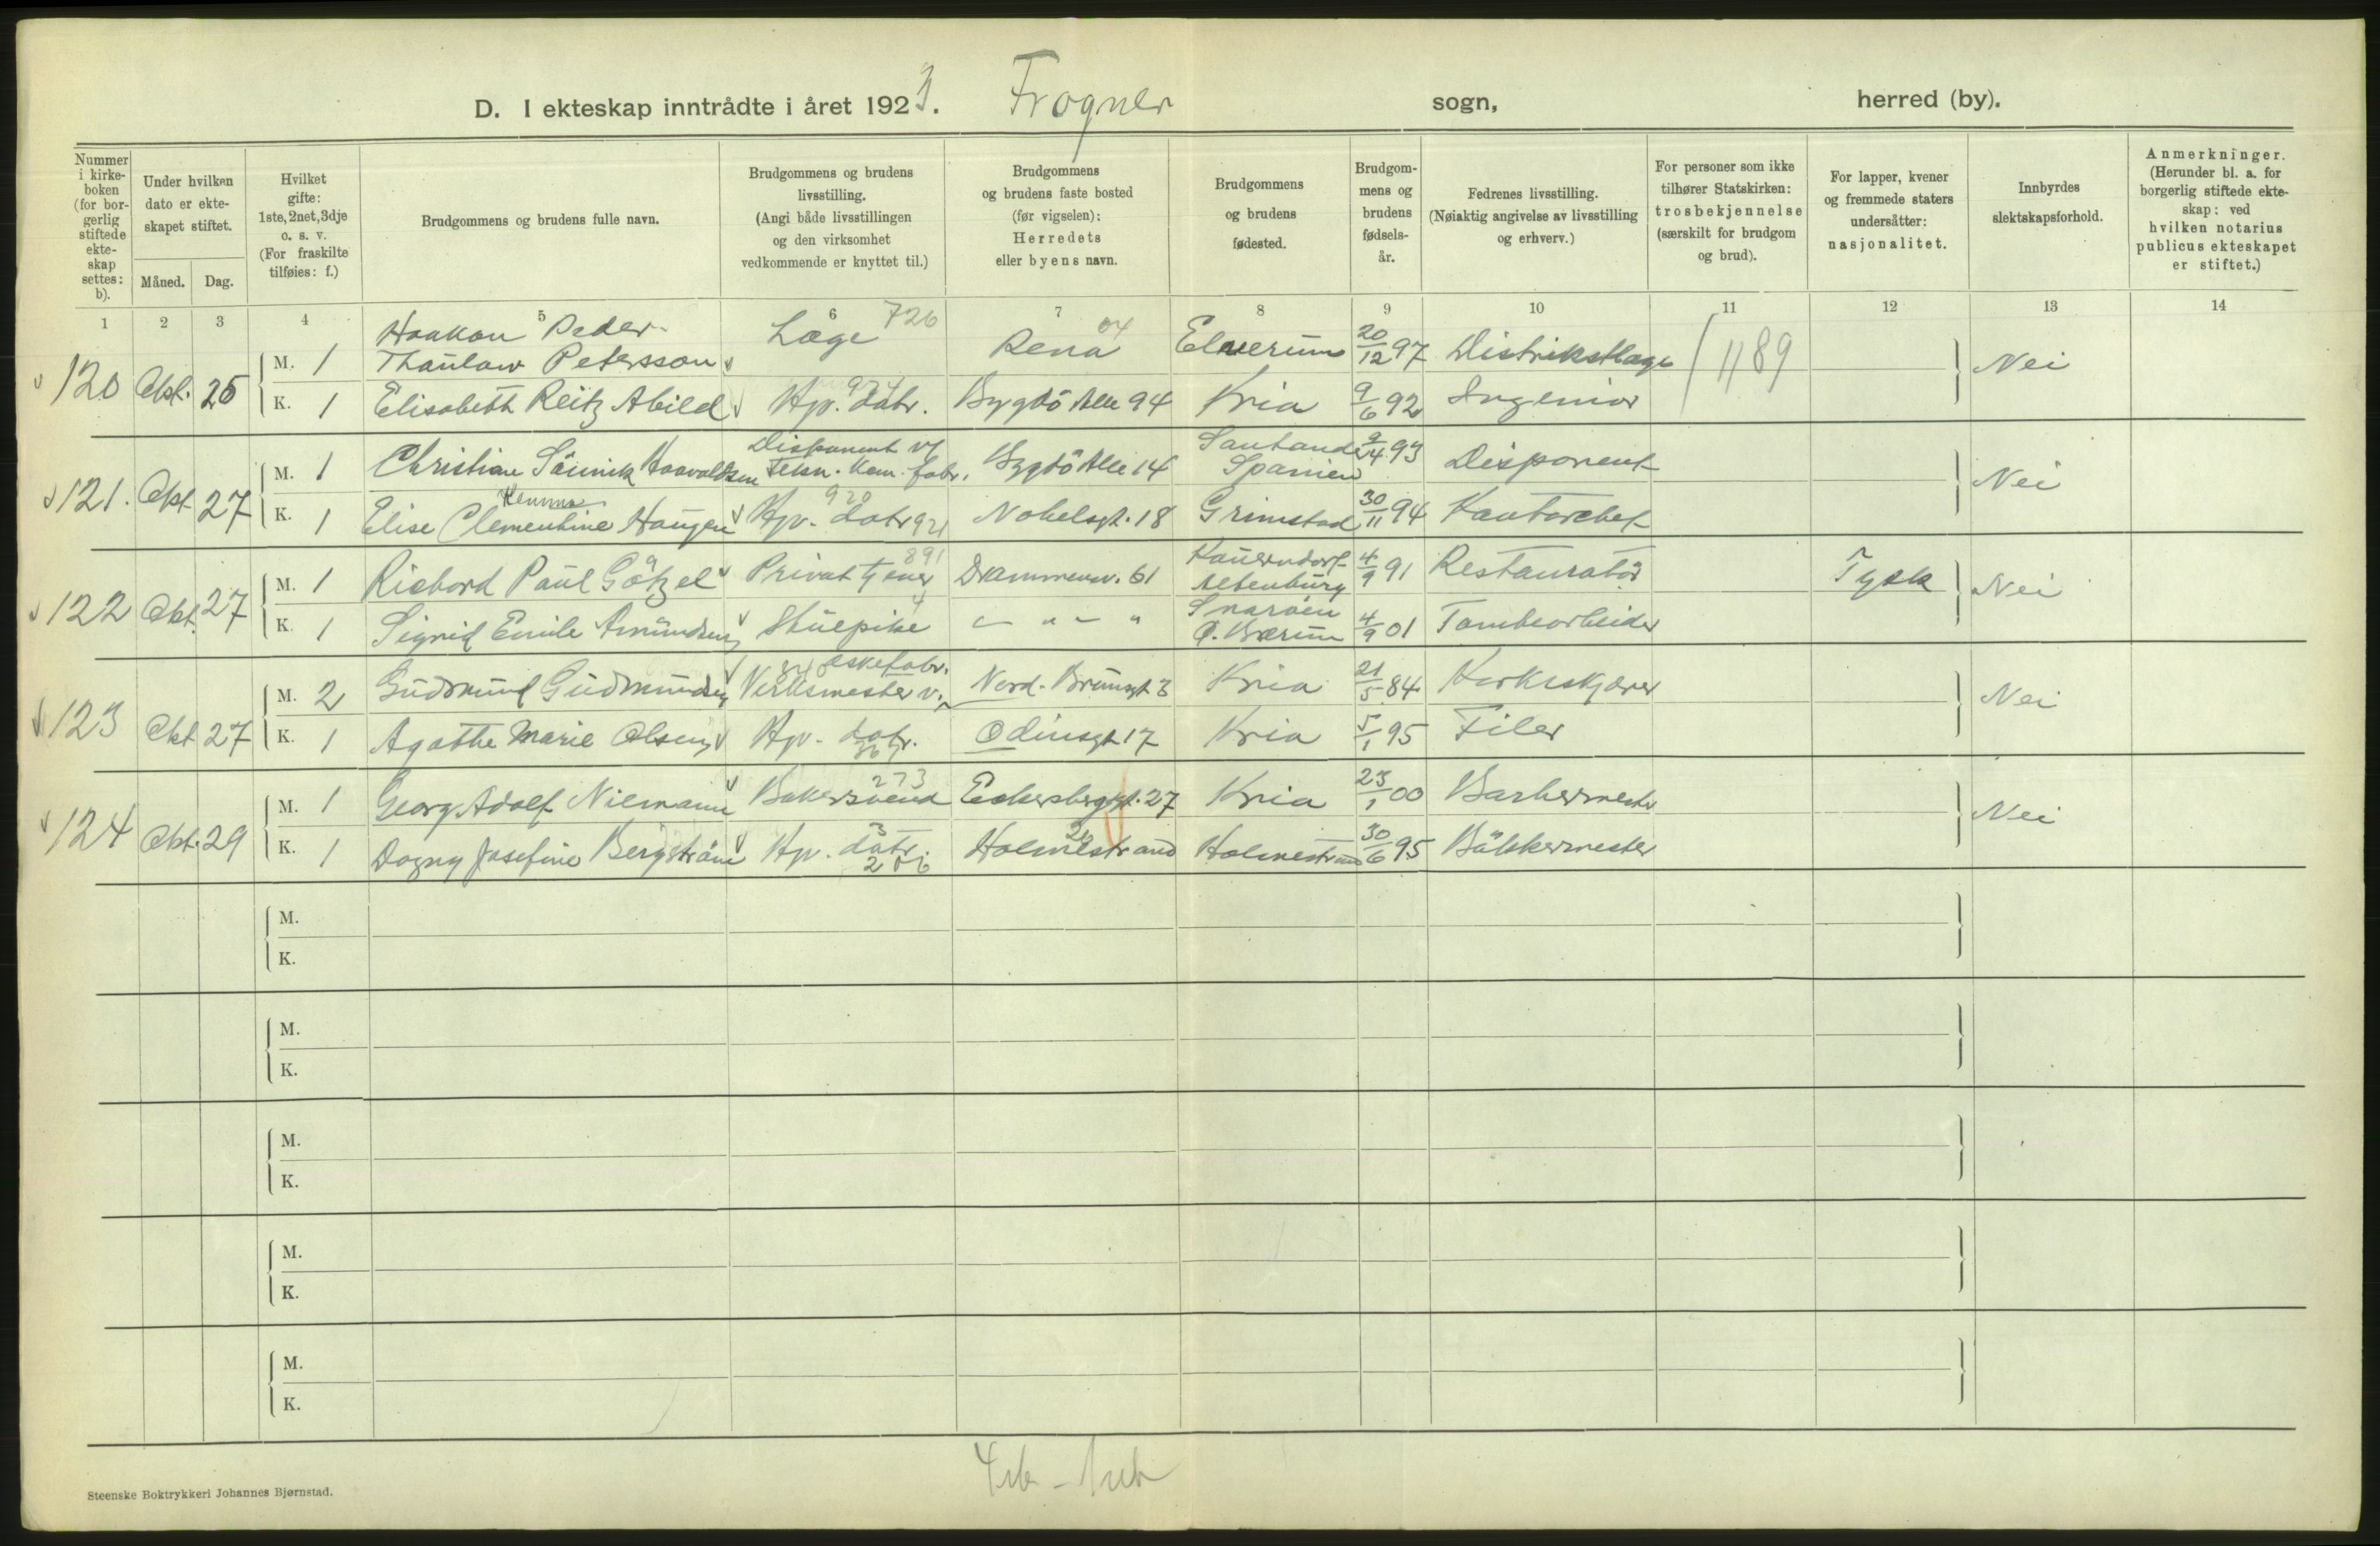 D. I ekteskap inntrådte i året 1923. Frogner sogn, herred (by).
Nummer i kirkeboken (for borgerlig stiftede ekteskap settes: b).
Under hvilken dato er ekteskapet stiftet.
Måned. Dag.
Hvilket gifte: 1ste, 2net, 3dje o. s. v. (For fraskilte tilføies: f.)
Brudgommens og brudens fulle navn.
Brudgommens og brudens livsstilling. (Angi både livsstillingen og den virksomhet vedkommende er knyttet til.)
Brudgommens og brudens faste bosted (før vigselen): Herredets eller byens navn.
Brudgommens og brudens fødested.
Brudgommens og brudens fødselsår.
Fedrenes livsstilling. (Nøiaktig angivelse av livsstilling og erhverv.)
For personer som ikke tilhører Statskirken: trosbekjennelse (særskilt for brudgom og brud).
For lapper, kvener og fremmede staters undersåtter: nasjonalitet.
Innbyrdes slektskapsforhold.
Anmerkninger. (Herunder bl. a. for borgerlig stiftede ekteskap: ved hvilken notarius publicus ekteskapet er stiftet.)
1 2 3 4 5 6 7 8 9 10 11 12 13 14
120 Okt. 25 M. 1 Haakon Peder Thaulow Petersson Læge 726 Rena 04 Elverum 20/12 97 Distriktslæge 1189 Nei
K. 1 Elisabeth Reitz Abild Hjv. datr. Bygdö Alle 94 Kria 9/6 92 Ingeniør
121. Okt 27 M. 1 Christian Haavaldsen Disponent v/ Tekn. Kem. fabr. Bygdö Alle 14 Santander Spanien 9/4 93 Disponent Nei
K. 1 Elise Clementine Haugen Hjv. datr 920 921 Nobelsgt. 18 Grimstad 30/11 94 Kontorchef
122 Okt. 27 M. 1 Richard Paul Götzel Privat tjener 891 Drammensv. 61 Altenburg 4/9 91 Restauratör Tysk Nei
K. 1 Signid Emilie Amundsen Stuepike — " — " Snaröen Ö. Bærum 4/9 01 Tomtearbeider
123 Okt 27 M. 2 Gudmund Gudmundsen Verksmester v. æskefabr. Nord. Brungt 3 Kria 21/5 84 Korkskjærer Nei
K. 1 Agathe Marie Olsen Hjv. datr. Odinsgt 17 Kria 5/1 95 Filer
124 Okt. 29 M. 1 Georg Adolf Niemann Bakersvend 273 Eckersbergsgt. 27 Kria 23/1 00 Barbermester Nei
K. 1 Dagny Josefine Bergström Hjv. datr. Holmestrand Holmestrand 30/6 95 Bökkermester
M.
K.
M.
K.
M.
K.
M.
K.
M.
K.
Steenske Boktrykkeri Johannes Bjørnstad.